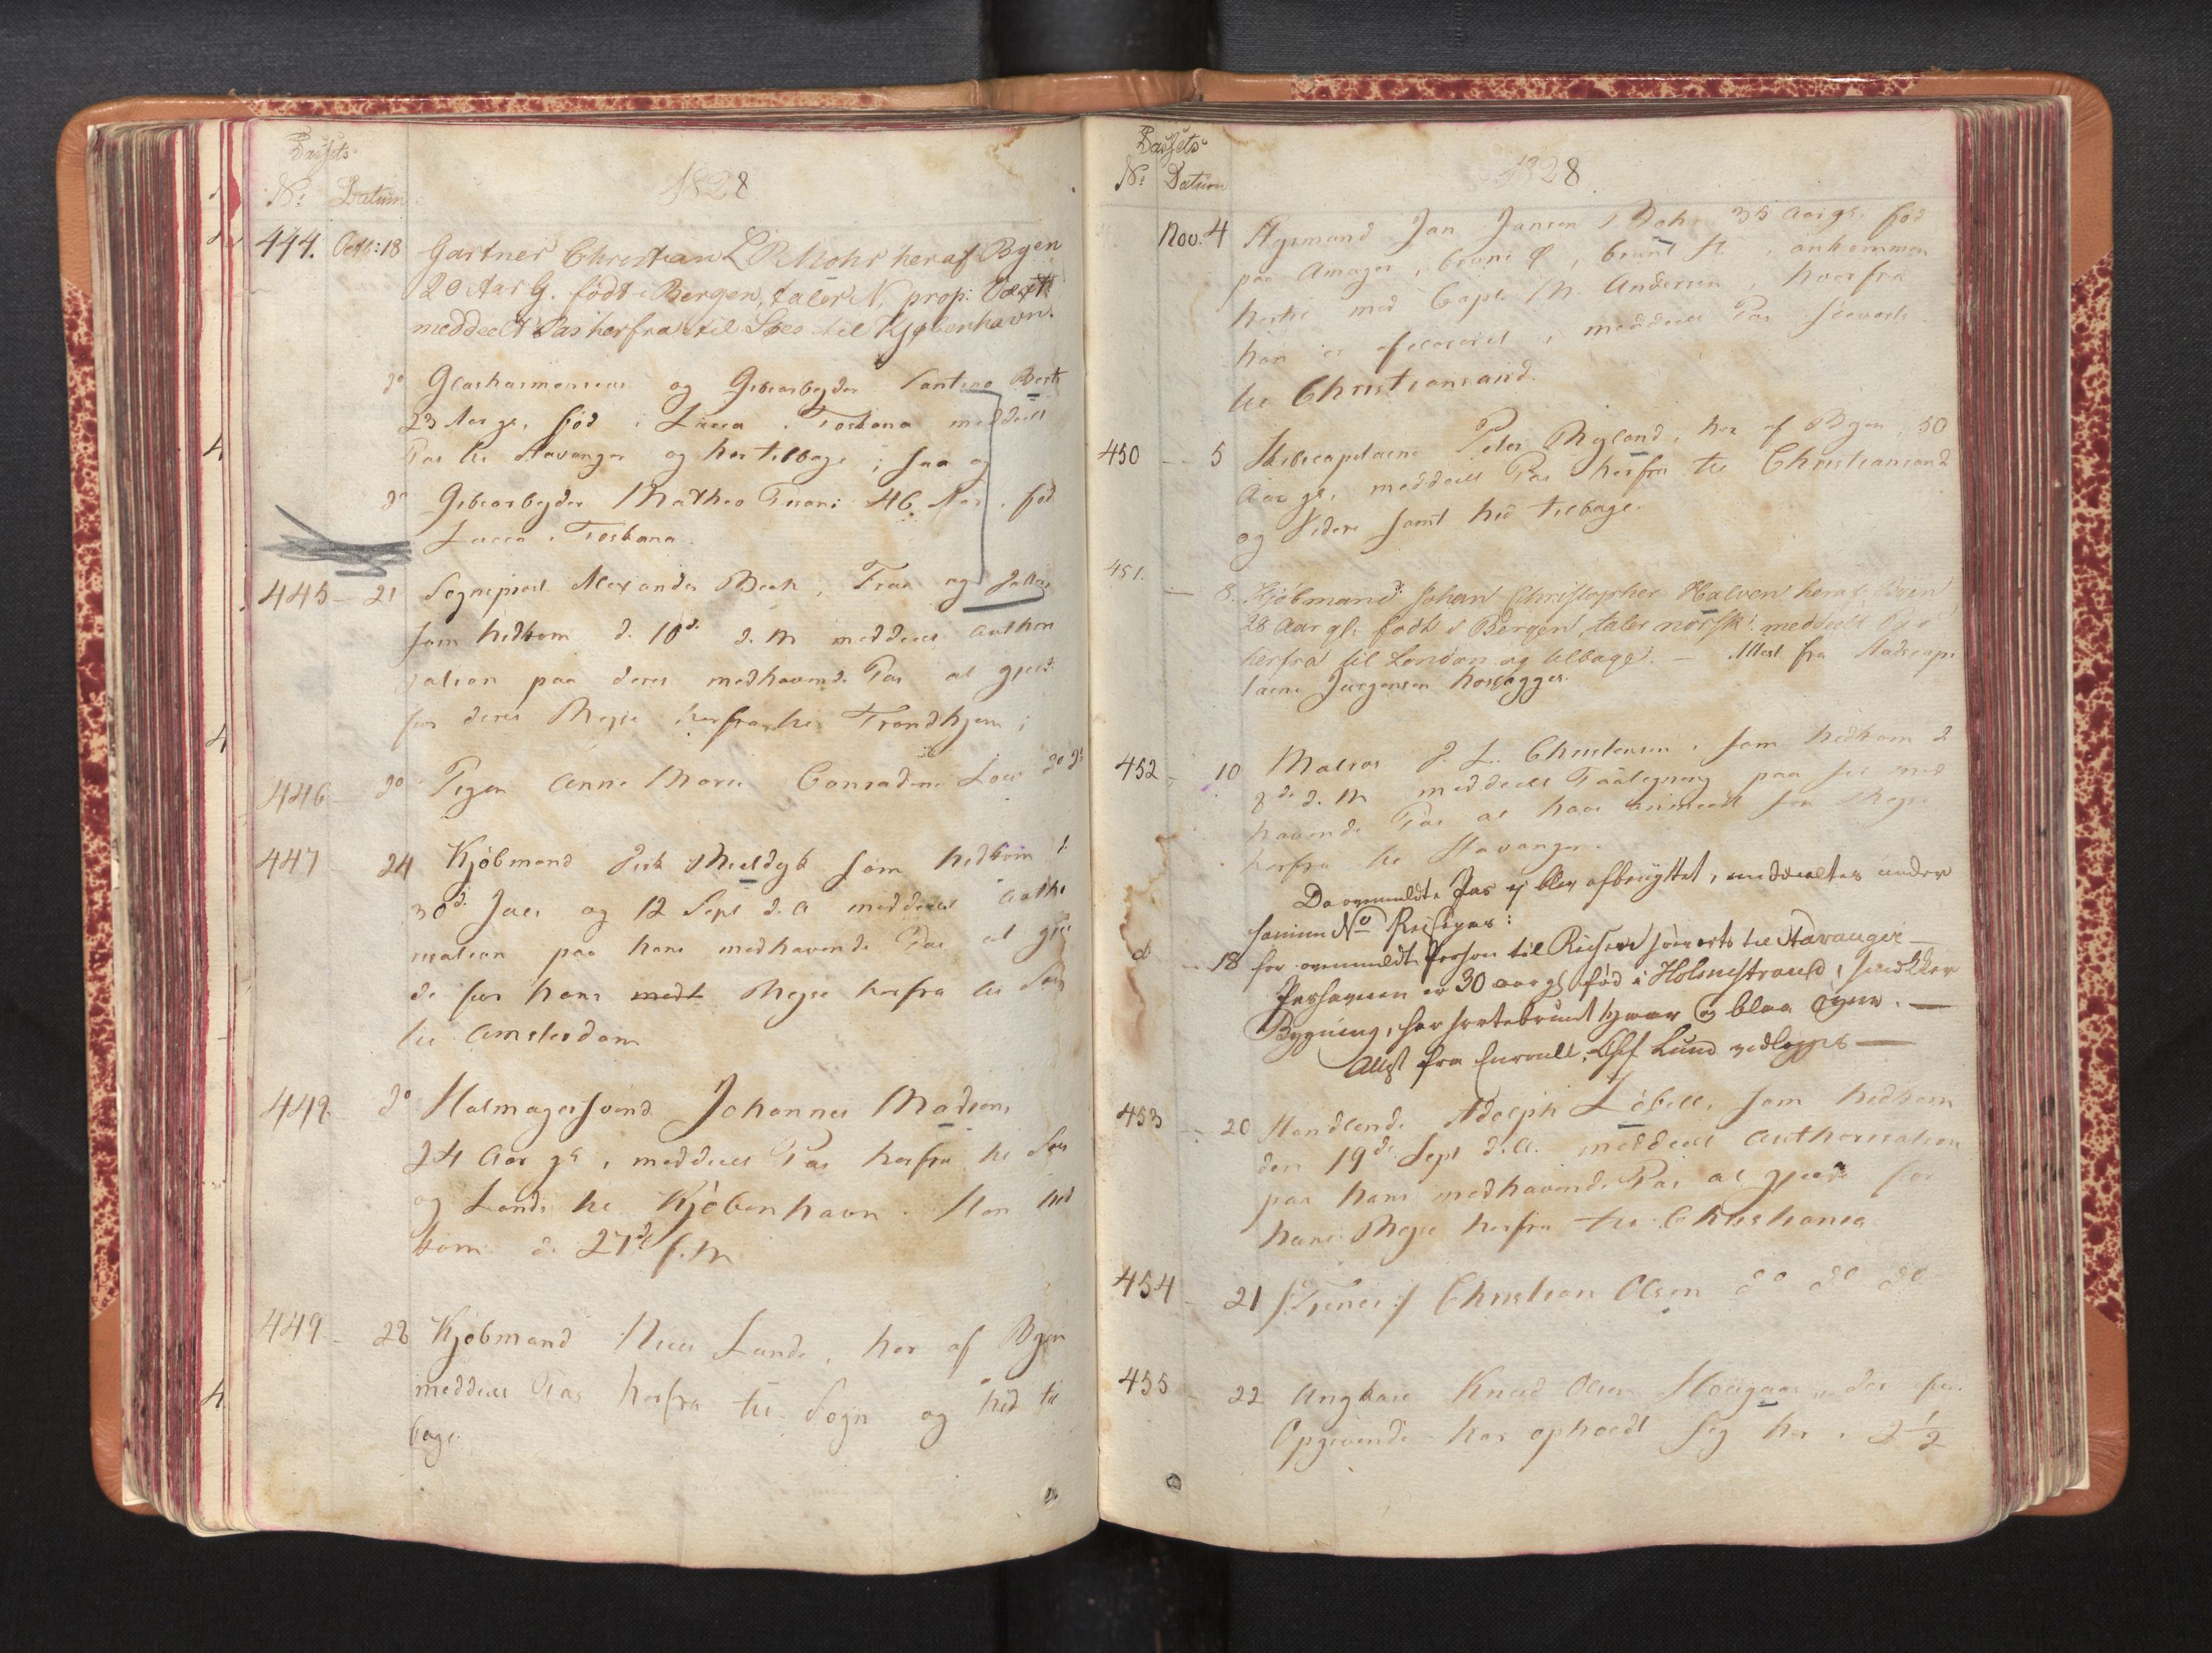 Passets
No Datum
1828
444. Octb: 18 Gartner Christian L R Mohr her af Byen
20 Aar G. födt i Bergen, taler N, prop: Væxt
meddeelt Pas herfra til Søes til Kjøbenhavn.
do og Gibsarbeyder Santino Berti
23 Aar gl. fød i Lucca i Toskana meddeelt
Pas til Stavanger og her tilbage; saa og
do Gibsarbeyder Matheo 46 Aar, fød
Lucca i Toskana
445 - 21 Sognepræst Alexander Bech, Frue og
som hidkom d. 10de d. M meddeelt Authori
sation paa deres medhavende Pas at gjelde
for deres Rejse herfra til Trondhjem;
446 - do Pigen Anne Marie Conradine Lou do do
447 24 Kjöbmand Dirk Meeldyk som hidkom d.
30d. Juli og 12 Sept d. A meddeelt Autho
risation paa hans medhavende Pas at gjel
de for hans Rejse herfra til Søes
til Amsterdam
448 do Hatmagersvend Johannes Madsen,
24 Aar gl, meddeelt Pas herfra til Søes
og Lands til Kjöbenhavn. Han hid
kom d. 27de f. M
449 - 28 Kjöbmand Niels Lunde, her af Byen
meddeelt Pas herfra til Sogn og hid til
bage.
Passets
No Datum
1828
Nov. 4 Styrmand Jan Jansen Bohr 35 Aar gl. fød
paa Amager, brune Ø, brunt H. ankommen
hertil med Capt. M. Andersen, hvorfra
han er afskediget, meddeelt Pas søeværts
til Christiansand.
450 - 5 Skibscapitaine Peter Myland, her af Byen, 50
Aar gl, meddeelt Pas herfra til Christiansand
og Videre samt hid tilbage.
451. - 8. Kjöbmand Johan Christopher Halven her af Byen
28 Aar gl. födt i Bergen, taler norsk: meddeelt Pas
herfra til London og tilbage. - Attest fra Stadscapi
taine Jurgensen
452 - 10 Matros J. L. Christensen, som hidkom d
8de d. M meddeelt Paategning paa sit med
havende Pas at have anmeldt sin Rejse
herfra til Stavanger.
Da ovenmeldte Pas ej blev afbenyttet, meddeeltes under
samme No Reisepas:
do - 18 for ovenmeldte Person til Reise søeværts til Stavanger -
Personen er 30 aar gl, fød i Holmestrand, smækker
Bygning, har sortebrunt Haar og blaa Øyne. -
Attest fra Enroull. Chef Lund vedlagges -
453 - 20 Handlende Adolph Löbell, som hidkom
den 19de Sept d. A. meddeelt Authorisation
paa hans medhavende Pas at gjelde for
hans Rejse herfra til Christiania
454 - 21 Christian Olsen do do do
455 - 22 Ungkarl Knud Olsen der for
Opgivende har opholdt sig her i 2 1/2